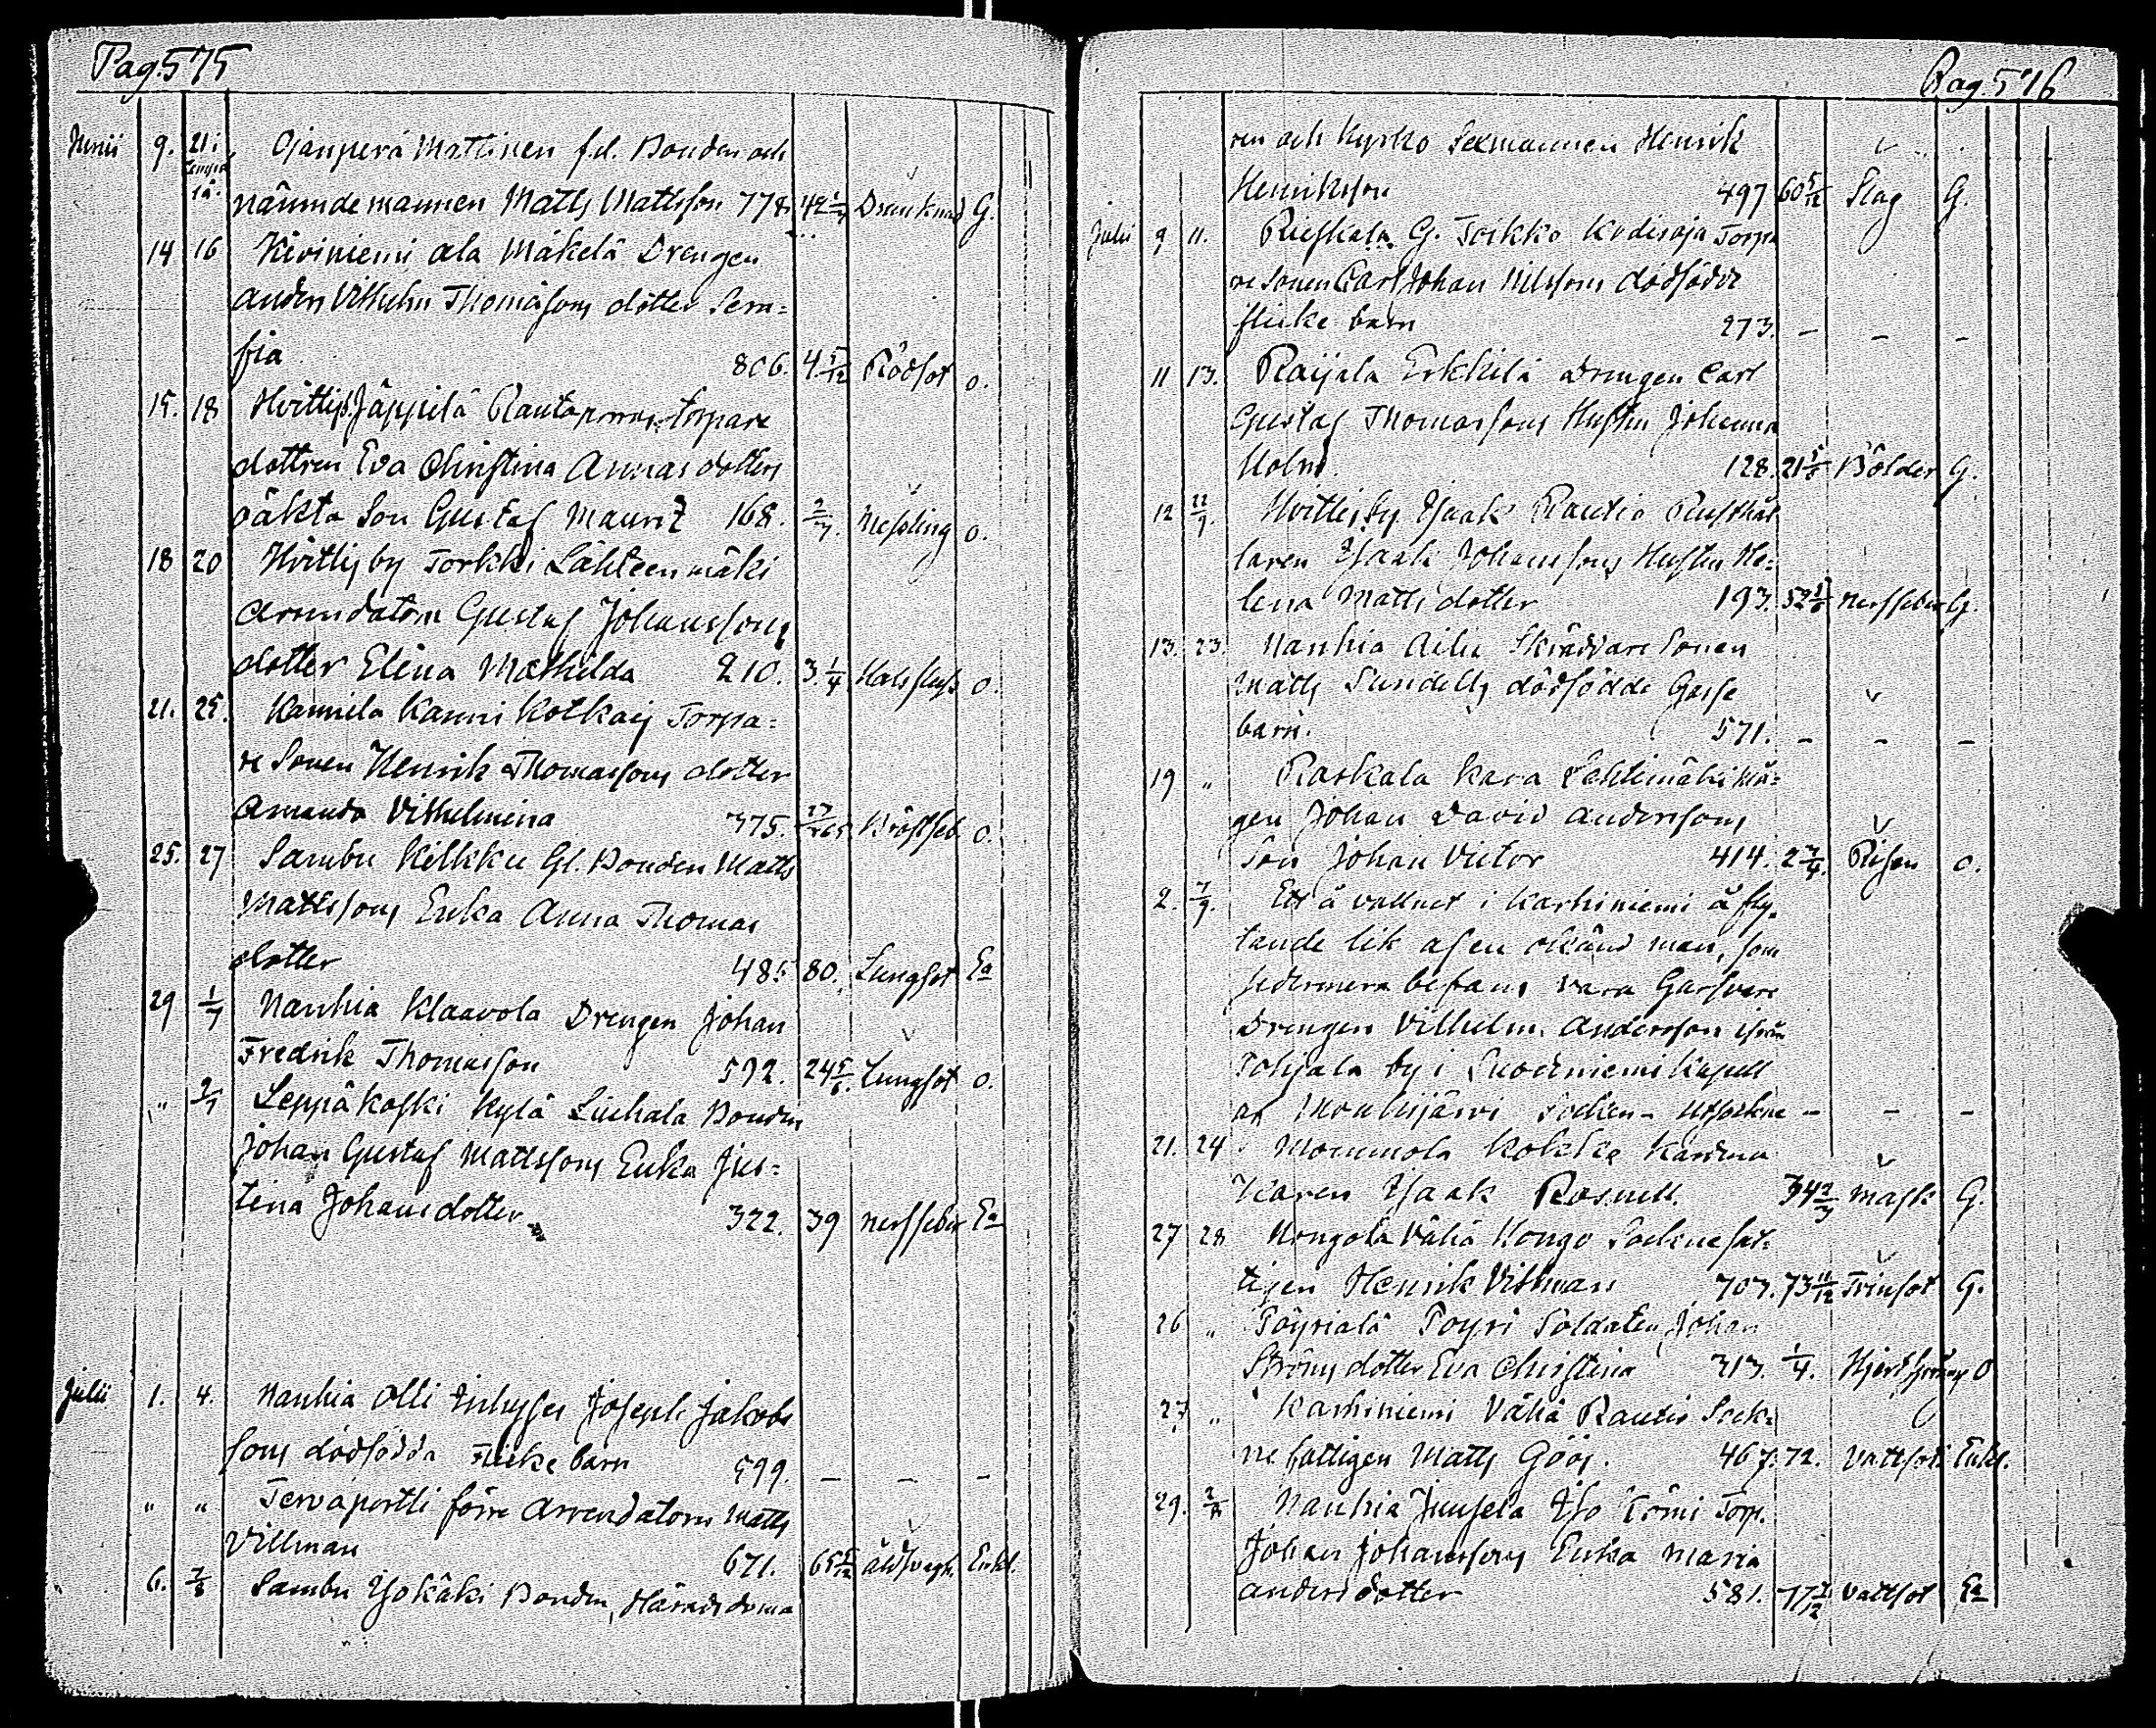 Pag. 575
Junii 9. 21 i Ojanperä Mattinen f.d. Bonden och
nämndemannen Matts Mattsson 778. 42 Drunknad G.
14 16 Kiviniemi ala Mäkelä Drengen
Anders Vilhelm Thomassons dotter Sera=
fia 806. 4 5/12 Rödsot o.
15. 18 Hvittis Jäppilä torpare
dottren Eva Christina Annas dotters
oäkta Son Gustaf Mauritz 168. Messling o.
18 20 Hvittis by Torkki Lähteenmäki
Arrendatorn Gustaf Johanssons
dotter Elina Mathilda 210. 3 1/4 Halsfluss o.
21. 25. Kannila Kanni Kotkais Torpa=
re Sonen Henrik Thomassons dotter
Amanda Vilhelmina 375. Bröstfeb. o.
25. 27 Sambu Kilkku Gl. Bonden Matts
Mattssons Enka Anna Thomas
dotter 485 80. Lungsot Ea
29 1/7 Nanhia Klaavola Drengen Johan
Fredrik Thomasson 592. 24 5/6. Lungsot o.
" 2/7 Leppäkoski Kylä Liuhala Bonden
Johan Gustaf Mattssons Enka Jus=
tina Johansdotter 322. 39 Nerffeber Ea
Julii 1. 4. Nanhia Olli Inhyses Joseph Jakobs
sons dödfödda Flicke barn 599. – – –
" " Tervapertti förre Arrendatorn Matts
Villman 671. 65 5/12 Enkl.
6. 7/8 Sambu Yokäki Bonden, Häradsdoma
Pag. 576
ren och Kyrko Sexmannen Henrik
Henriksson 497 60 5/12 Slag G.
Julii 9 11. Rieskala G. Toikko Kodisoja Torpa
re Sonen Carl Johan Nilssons dödfödde
flicke barn 273. – – –
11 13. Raijala Erkkilä Drengen Carl
Gustaf Thomassons Hustru Johanna
Holm. 128. 21 Bölder G.
12 22/7. Hvittis by Isaak Rautio Rusthål
laren Isaak Johanssons Hustru He=
lena Mattsdotter 193. 52 Nerffeber G.
13. 23. Nanhia Ailu Skräddare Sonen
Matts Sundells dödfödde Gosse
barn. 571. – – –
19 " Raskala Kara Lähtimäki
gen Johan David Anderssons
Son Johan Victor 414. 2 3/4. Risen o.
2. 7/7. Ett å vattnet i Karhiniemi å fly=
tande lik af en okänd man, som
sedermera befans vara Garfvare
Drengen Vilhelm Andersson ifrån
Pohjala by i Suodeniemi Kapell
af Mouhijärvi Socken – – – –
21. 24 Mommola Kokka
Karen Isaak Rosnell 34 2/3 Mask G.
27 28 Kongola Vähä Kongo Sockne fat=
tigen Henrik Vittman 707. 73 11/12 Tvinsot G.
26 " Pöyriälä Pöyri Soldaten Johan
Ströms dotter Eva Christina 313. 1/4.
27 " Karhiniemi Vähä Rautio Sock=
ne fattigen Matts Göös. 467. 72. Vattsot. Enkl.
29. Nanhia Junsela Iso Tömi Torp.
Johan Johanssons Enka Maria
Andersdotter 581. 77 7/12 Vattsot Ea